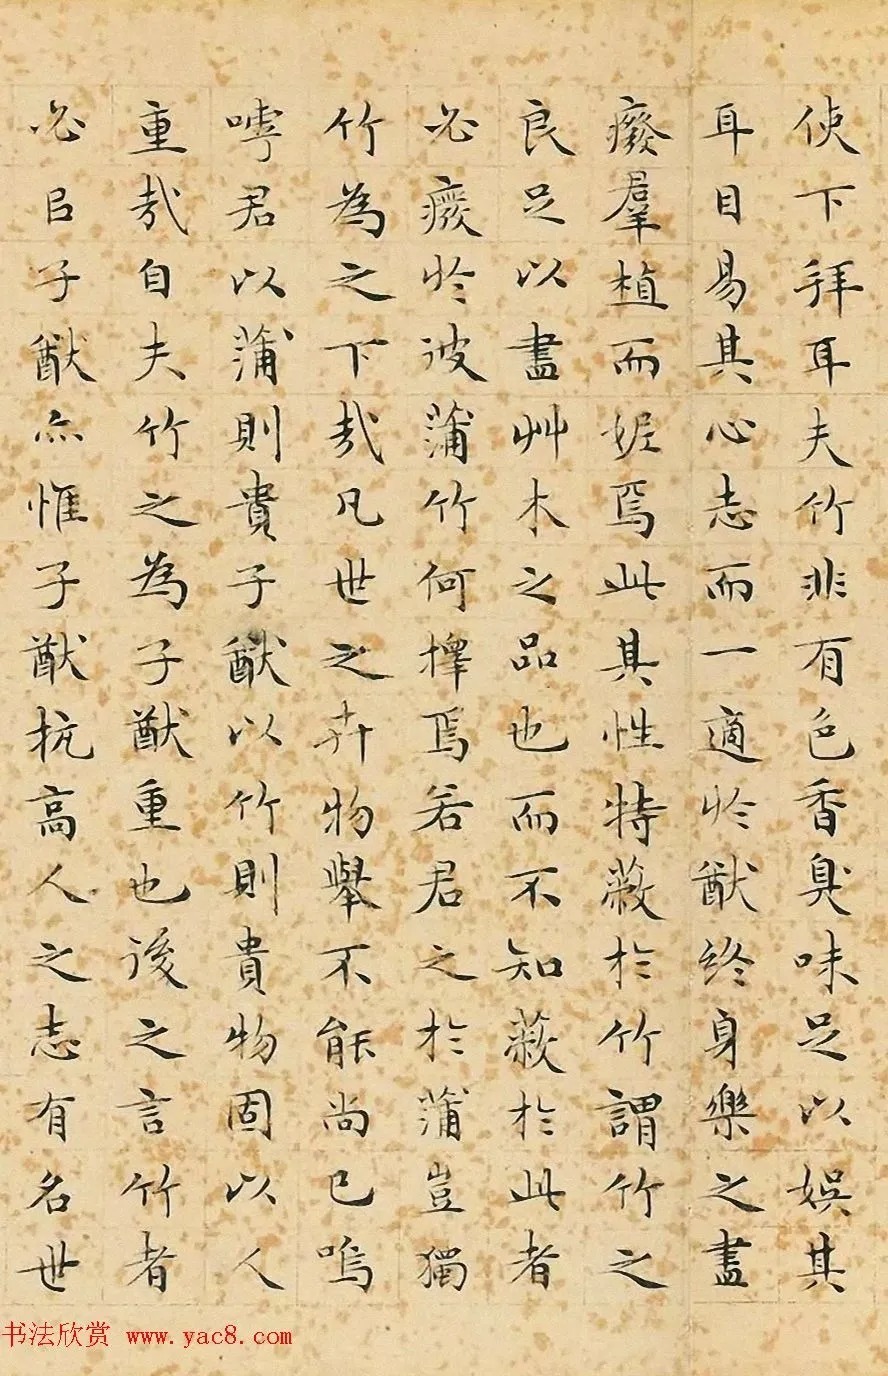 使下拜耳夫竹非有色香臭味足以娱其
耳目易其心志而一適於猷終身樂之盡
癈羣植而妮焉此其性特蔽於竹謂竹之
良足以盡艸木之品也而不知蔽於此者
必癈於彼蒲竹何擇焉若君之於蒲豈獨
竹為之下哉凡世之卉物舉不能尚已嗚
嘑君以蒲則貴子猷以竹則貴物固以人
重哉自夫竹之為子猷重也後之言竹者
必曰子猷亦惟子猷抗高人之志有名世
书法欣赏 www.yac8.com